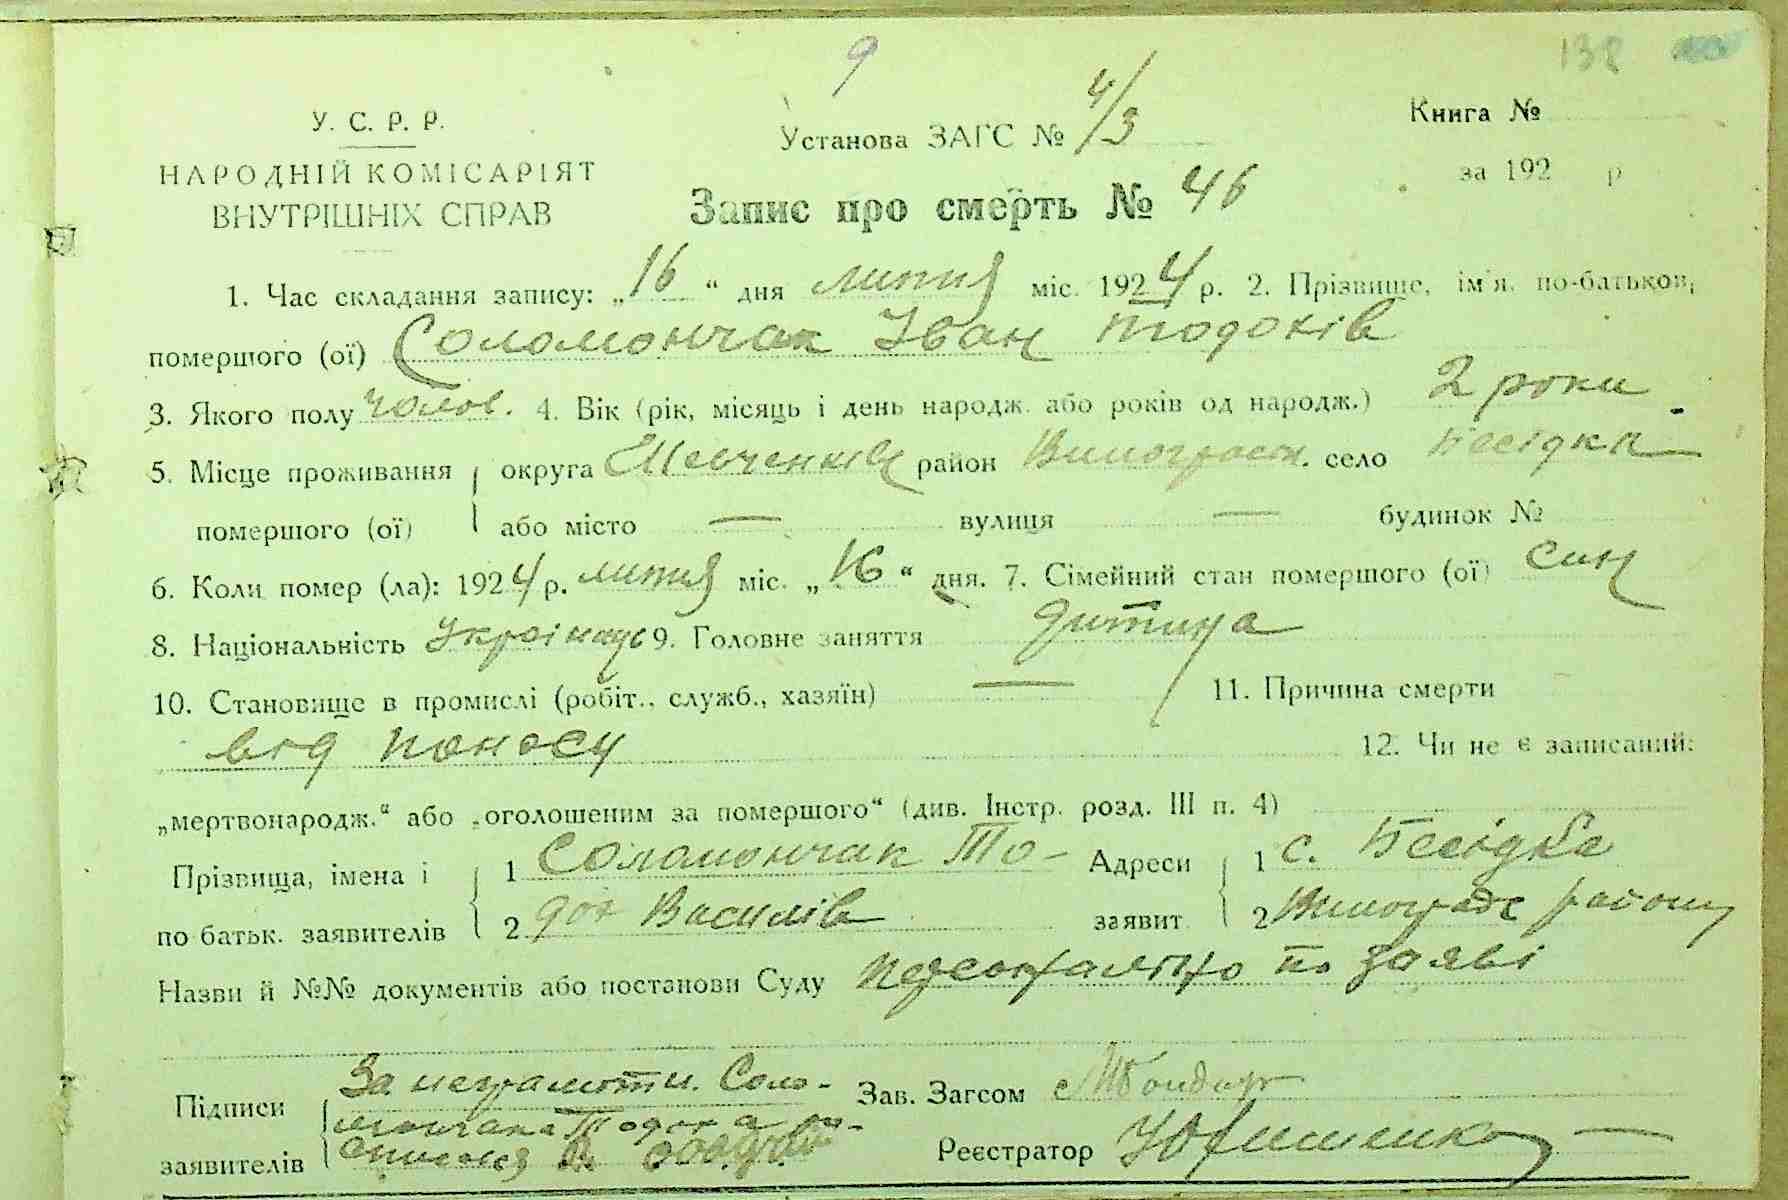 9
138
У. С. Р. Р.
НАРОДНІЙ КОМІСАРІЯТ
ВНУТРІШНІХ СПРАВ
Установа ЗАГС № 4/3
Книга №
за 192 р
Запис про смерть № 46
1. Час складання запису: „16“ дня липня міс. 1924 р. 2. Прізвище, ім'я, по-батькові
помершого (ої) Соломончак Іван Тодохів
3. Якого полу чолов. 4. Вік (рік, місяць і день народж. або років од народж.) 2 роки
5. Місце проживання помершого (ої) округа Шевченків район Виноград. село Бесідка
або місто — вулиця — будинок №
6. Коли помер (ла): 1924 р. липня міс. „16“ дня. 7. Сімейний стан помершого (ої) син
8. Національність Українець 9. Головне заняття дитина
10. Становище в промислі (робіт., служб., хазяїн) — 11. Причина смерти
від поносу 12. Чи не є записаний:
„мертвонародж.“ або „оголошеним за помершого“ (див. Інстр. розд. III п. 4)
Прізвища, імена і 1 Соломончак То- Адреси 1 с. Бесідка
по батьк. заявителів 2 дох Василів заявит. 2 Виноградс району
Назви й №№ документів або постанови Суду персонально по заяві
Підписи За неграмотн. Соло- Зав. Загсом МБондар
мончака Тодоха
заявителів Реєстратор